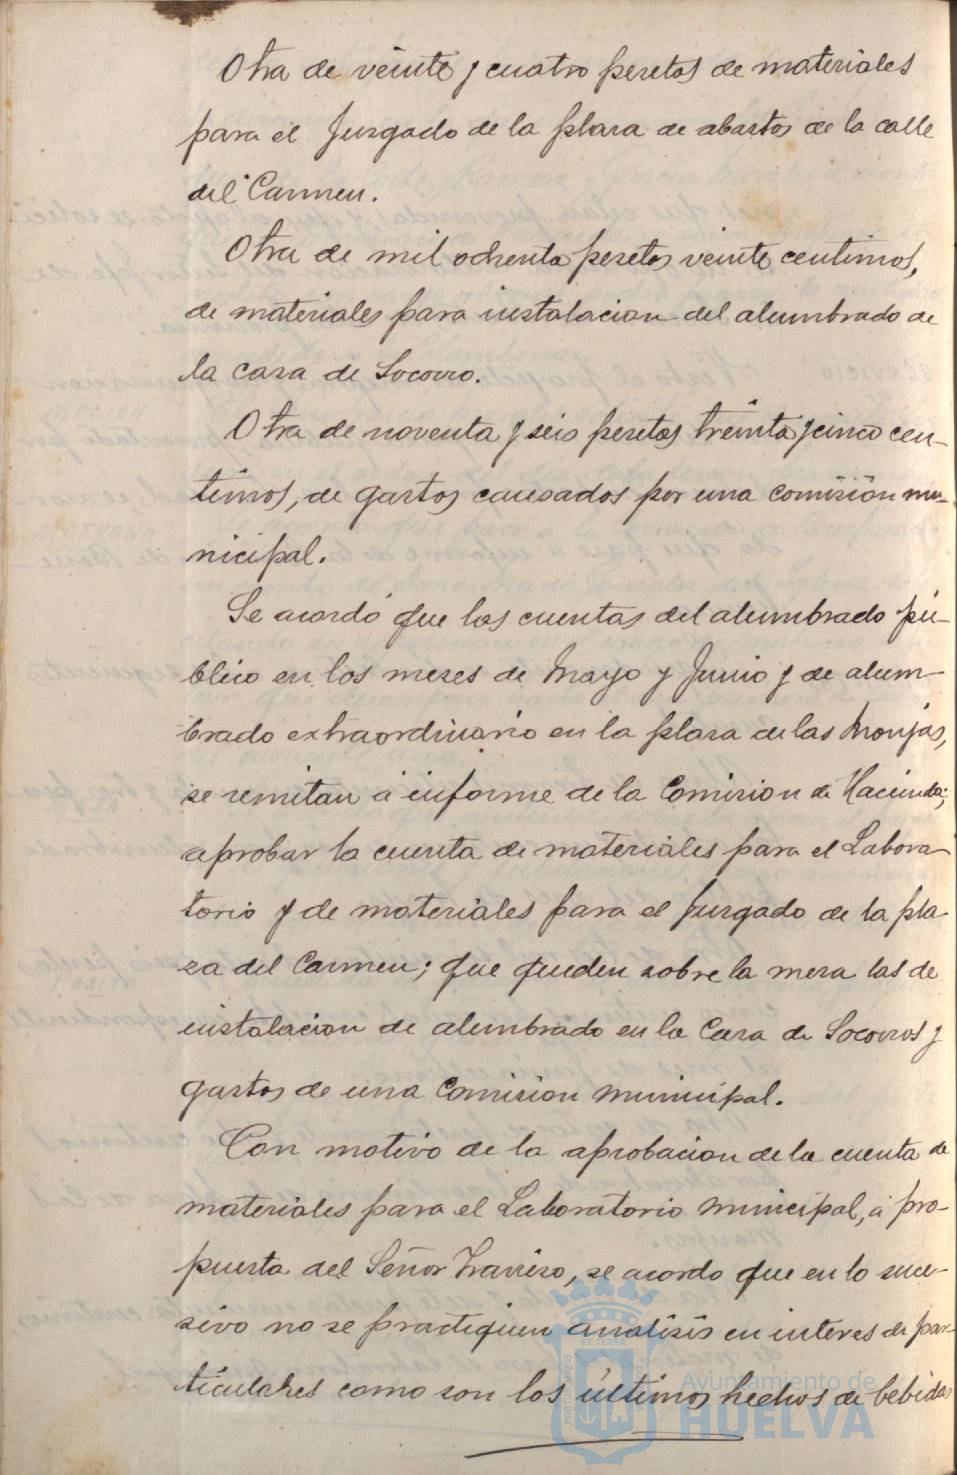 Otra de veinte y cuatro pesetas de materiales
para el Juzgado de la plasa de abastos de la calle
del Carmen.
Otra de mil ochenta pesetas veinte centimos,
de materiales para instalacion del alumbrado de
la casa de Socorro.
Otra de noventa y seis pesetas treinta y cinco cen-
timos, de gastos causados por una comisión mu-
nicipal.
Se acordó que las cuentas del alumbrado pú-
blico en los meses de Mayo y Junio y de alum-
brado extraordinario en la plasa de las Monjas,
se remitan á informe de la Comision de Hacienda;
aprobar la cuenta de materiales para el Labora-
torio y de materiales para el Juzgado de la pla-
za del Carmen; que queden sobre la mesa las de
instalacion de alumbrado en la Casa de Socorros y
gastos de una Comision municipal.
Con motivo de la aprobacion de la cuenta de
materiales para el Laboratorio municipal, á pro-
puesta del Señor Traviero, se acordo que en lo suce-
sivo no se practiquen analisis en interes de par-
ticulares como son los últimos hechos de bebidas
Ayuntamiento de
HUELVA